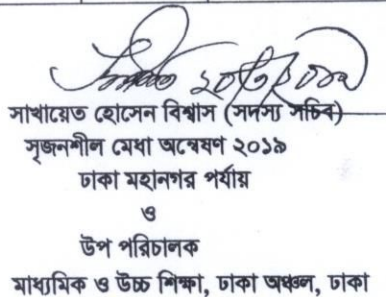 সাখায়েত হোসেন বিশ্বাস (সদস্য সচিব)
সৃজনশীল মেধা অন্বেষণ ২০১৯
ঢাকা মহানগর পর্যায়
ও
উপ পরিচালক
মাধ্যমিক ও উচ্চ শিক্ষা, ঢাকা অঞ্চল, ঢাকা